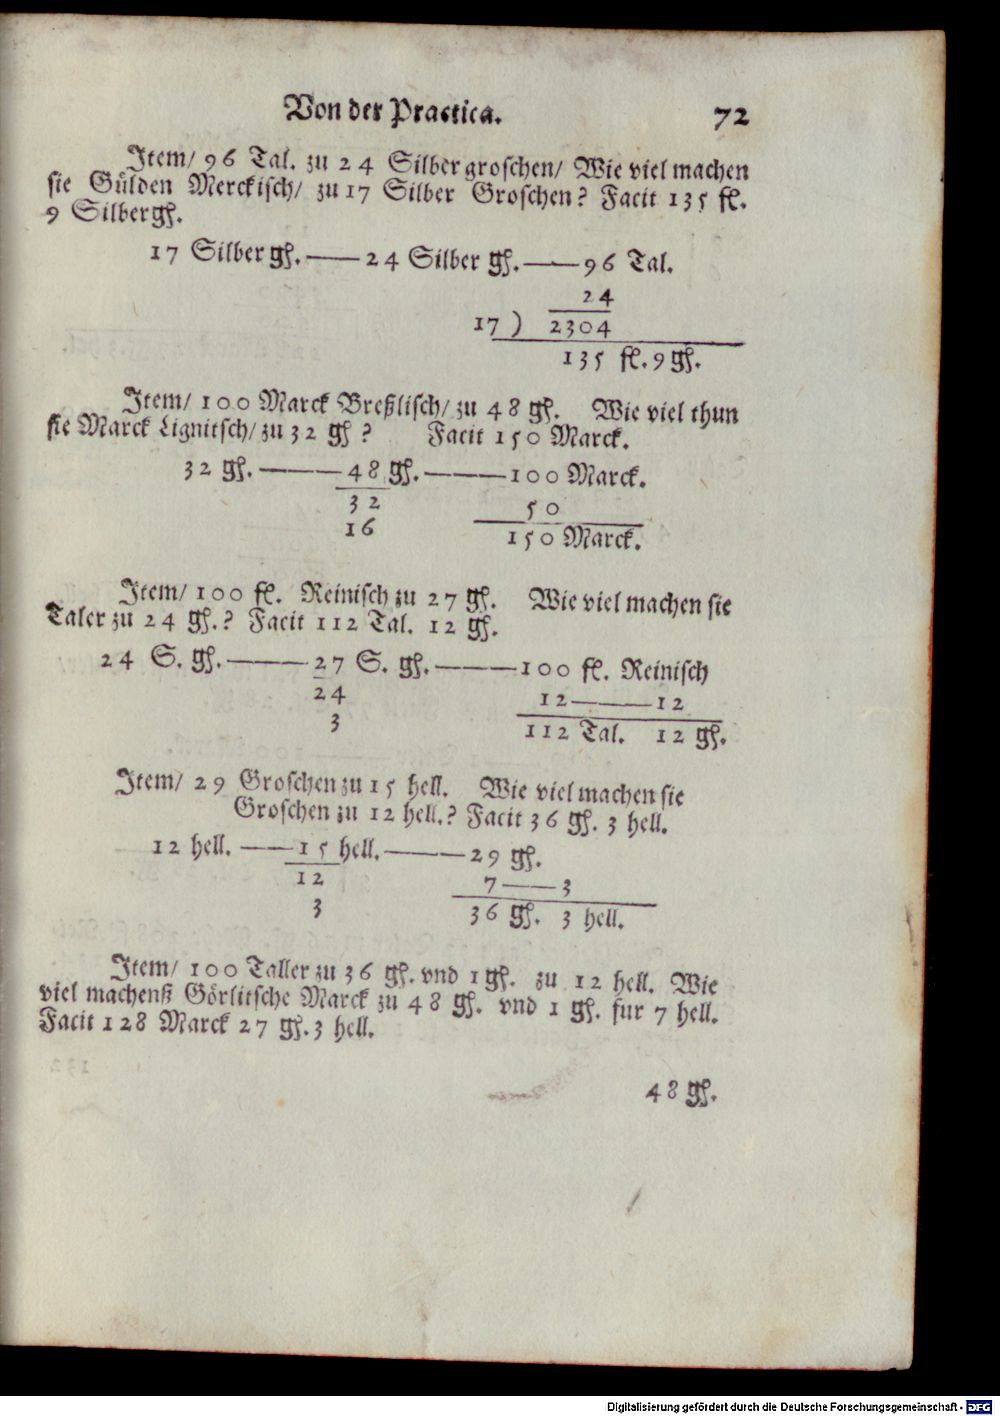 Von der Practica. 72
Item/ 96 Tal. zu 24 Silbergroschen/ Wie viel machen
sie Gülden Merckisch/ zu 17 Silber Groschen? Facit 135 fl.
9 Silbergß.
17 Silber gß. —— 24 Silber gß. —— 96 Tal.
24
17 ) 2304
135 fl. 9 gß.
Item/ 100 Marck Breßlisch/ zu 48 gß. Wie viel thun
sie Marck Lignitsch/ zu 32 gß? Facit 150 Marck.
32 gß. ——— 48 gß. ——— 100 Marck.
32 50
16 150 Marck.
Item/ 100 fl. Reinisch zu 27 gß. Wie viel machen sie
Taler zu 24 gß.? Facit 112 Tal. 12 gß.
24 S. gß. ——— 27 S. gß. ——— 100 fl. Reinisch
24 12 ——— 12
3 112 Tal. 12 gß.
Item/ 29 Groschen zu 15 hell. Wie viel machen sie
Groschen zu 12 hell.? Facit 36 gß. 3 hell.
12 hell. —— 15 hell. ——— 29 gß.
12 7 —— 3
3 36 gß. 3 hell.
Item/ 100 Taller zu 36 gß. vnd 1 gß. zu 12 hell. Wie
viel machenß Görlitsche Marck zu 48 gß. vnd 1 gß. fur 7 hell.
Facit 128 Marck 27 gß. 3 hell.
48 gß.
Digitalisierung gefördert durch die Deutsche Forschungsgemeinschaft - DFG